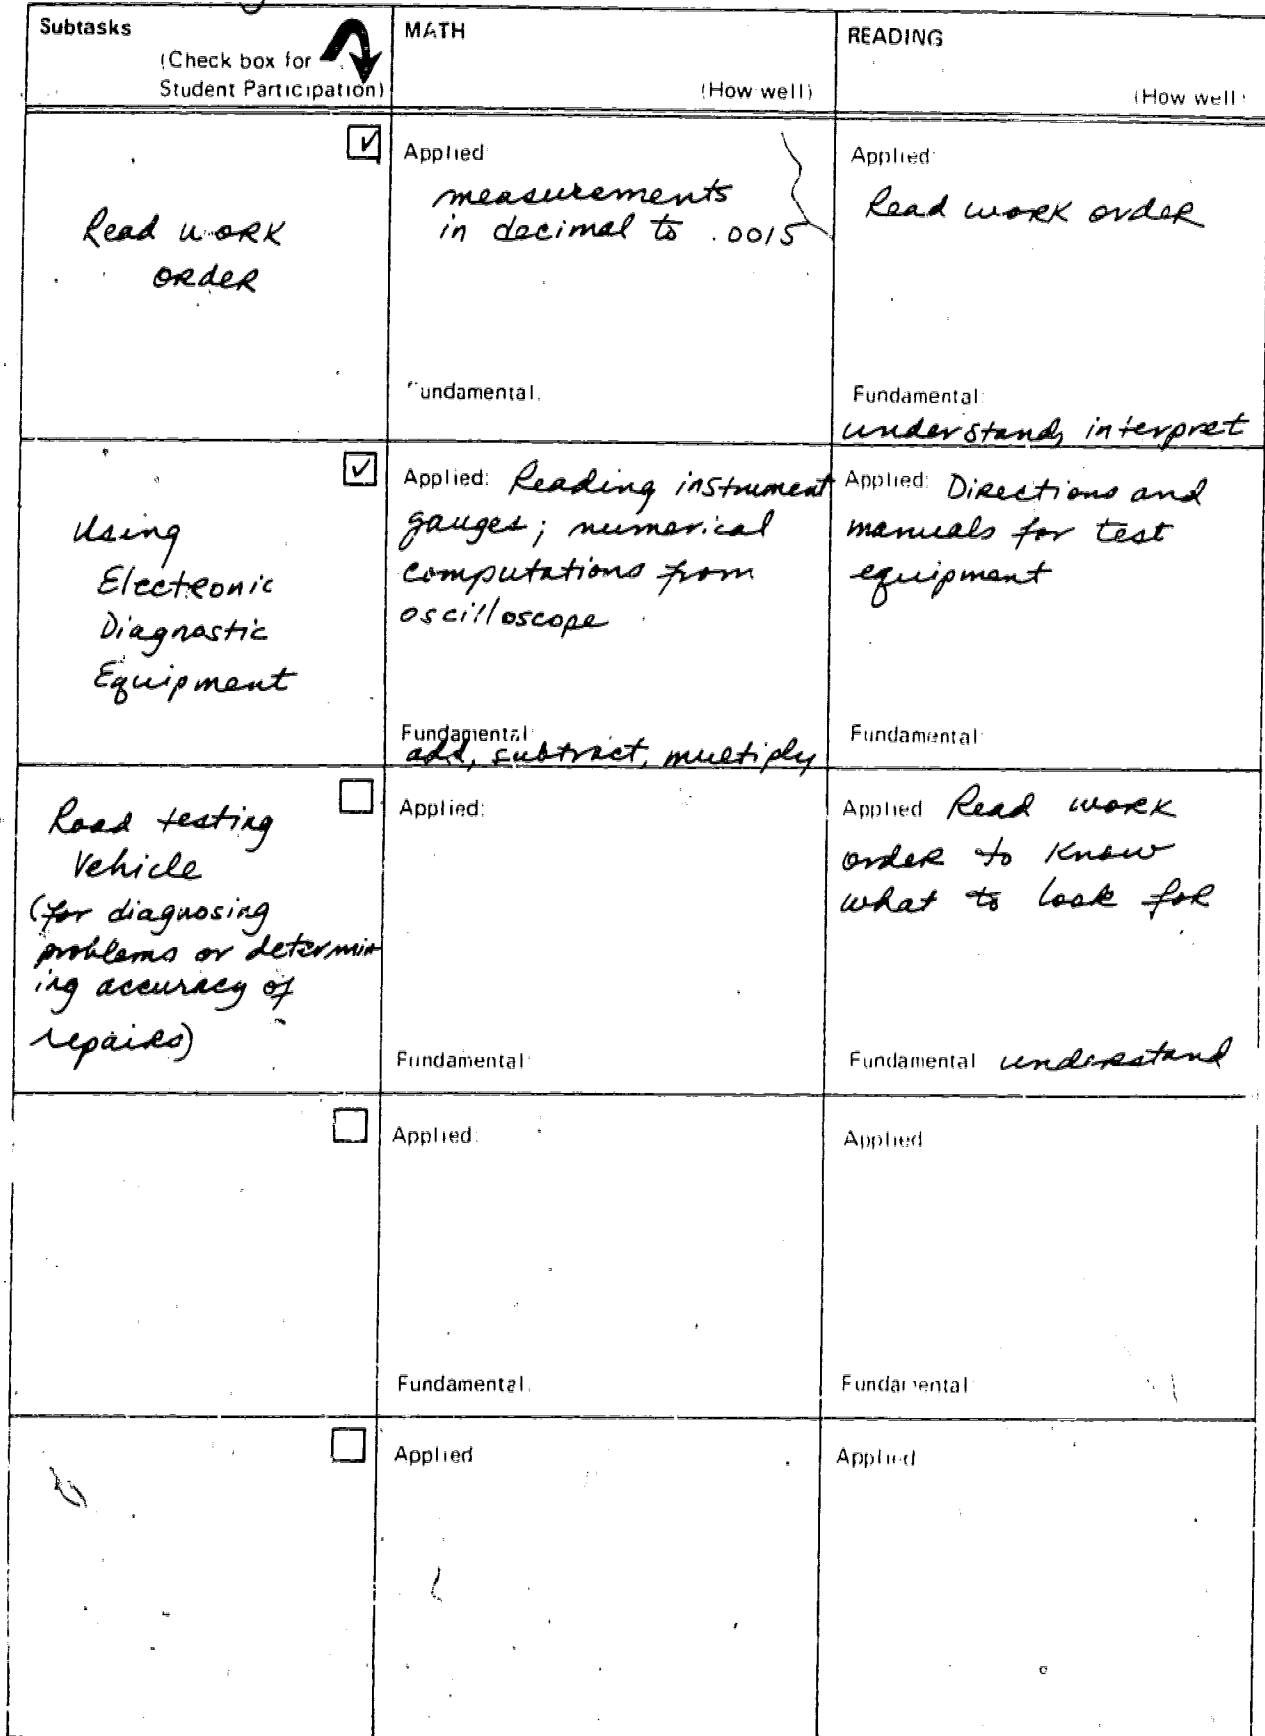 Subtasks
(Check box for
Student Participation)
MATH
(How well)
READING
(How well)
Read work
order
Applied
measurements
in decimal to .0015
Fundamental.
Applied:
Read work order
Fundamental:
understand, interpret
Using
Electronic
Diagnostic
Equipment
Applied: Reading instrument
gauges; numerical
computations from
oscilloscope
Fundamental:
add, subtract, multiply
Applied: Directions and
manuals for test
equipment
Fundamental:
Road testing
Vehicle
(for diagnosing
problems or determin
ing accuracy of
repairs)
Applied:
Fundamental:
Applied Read work
order to know
what to look for
Fundamental understand
Applied:
Fundamental.
Applied
Fundamental
Applied
Applied